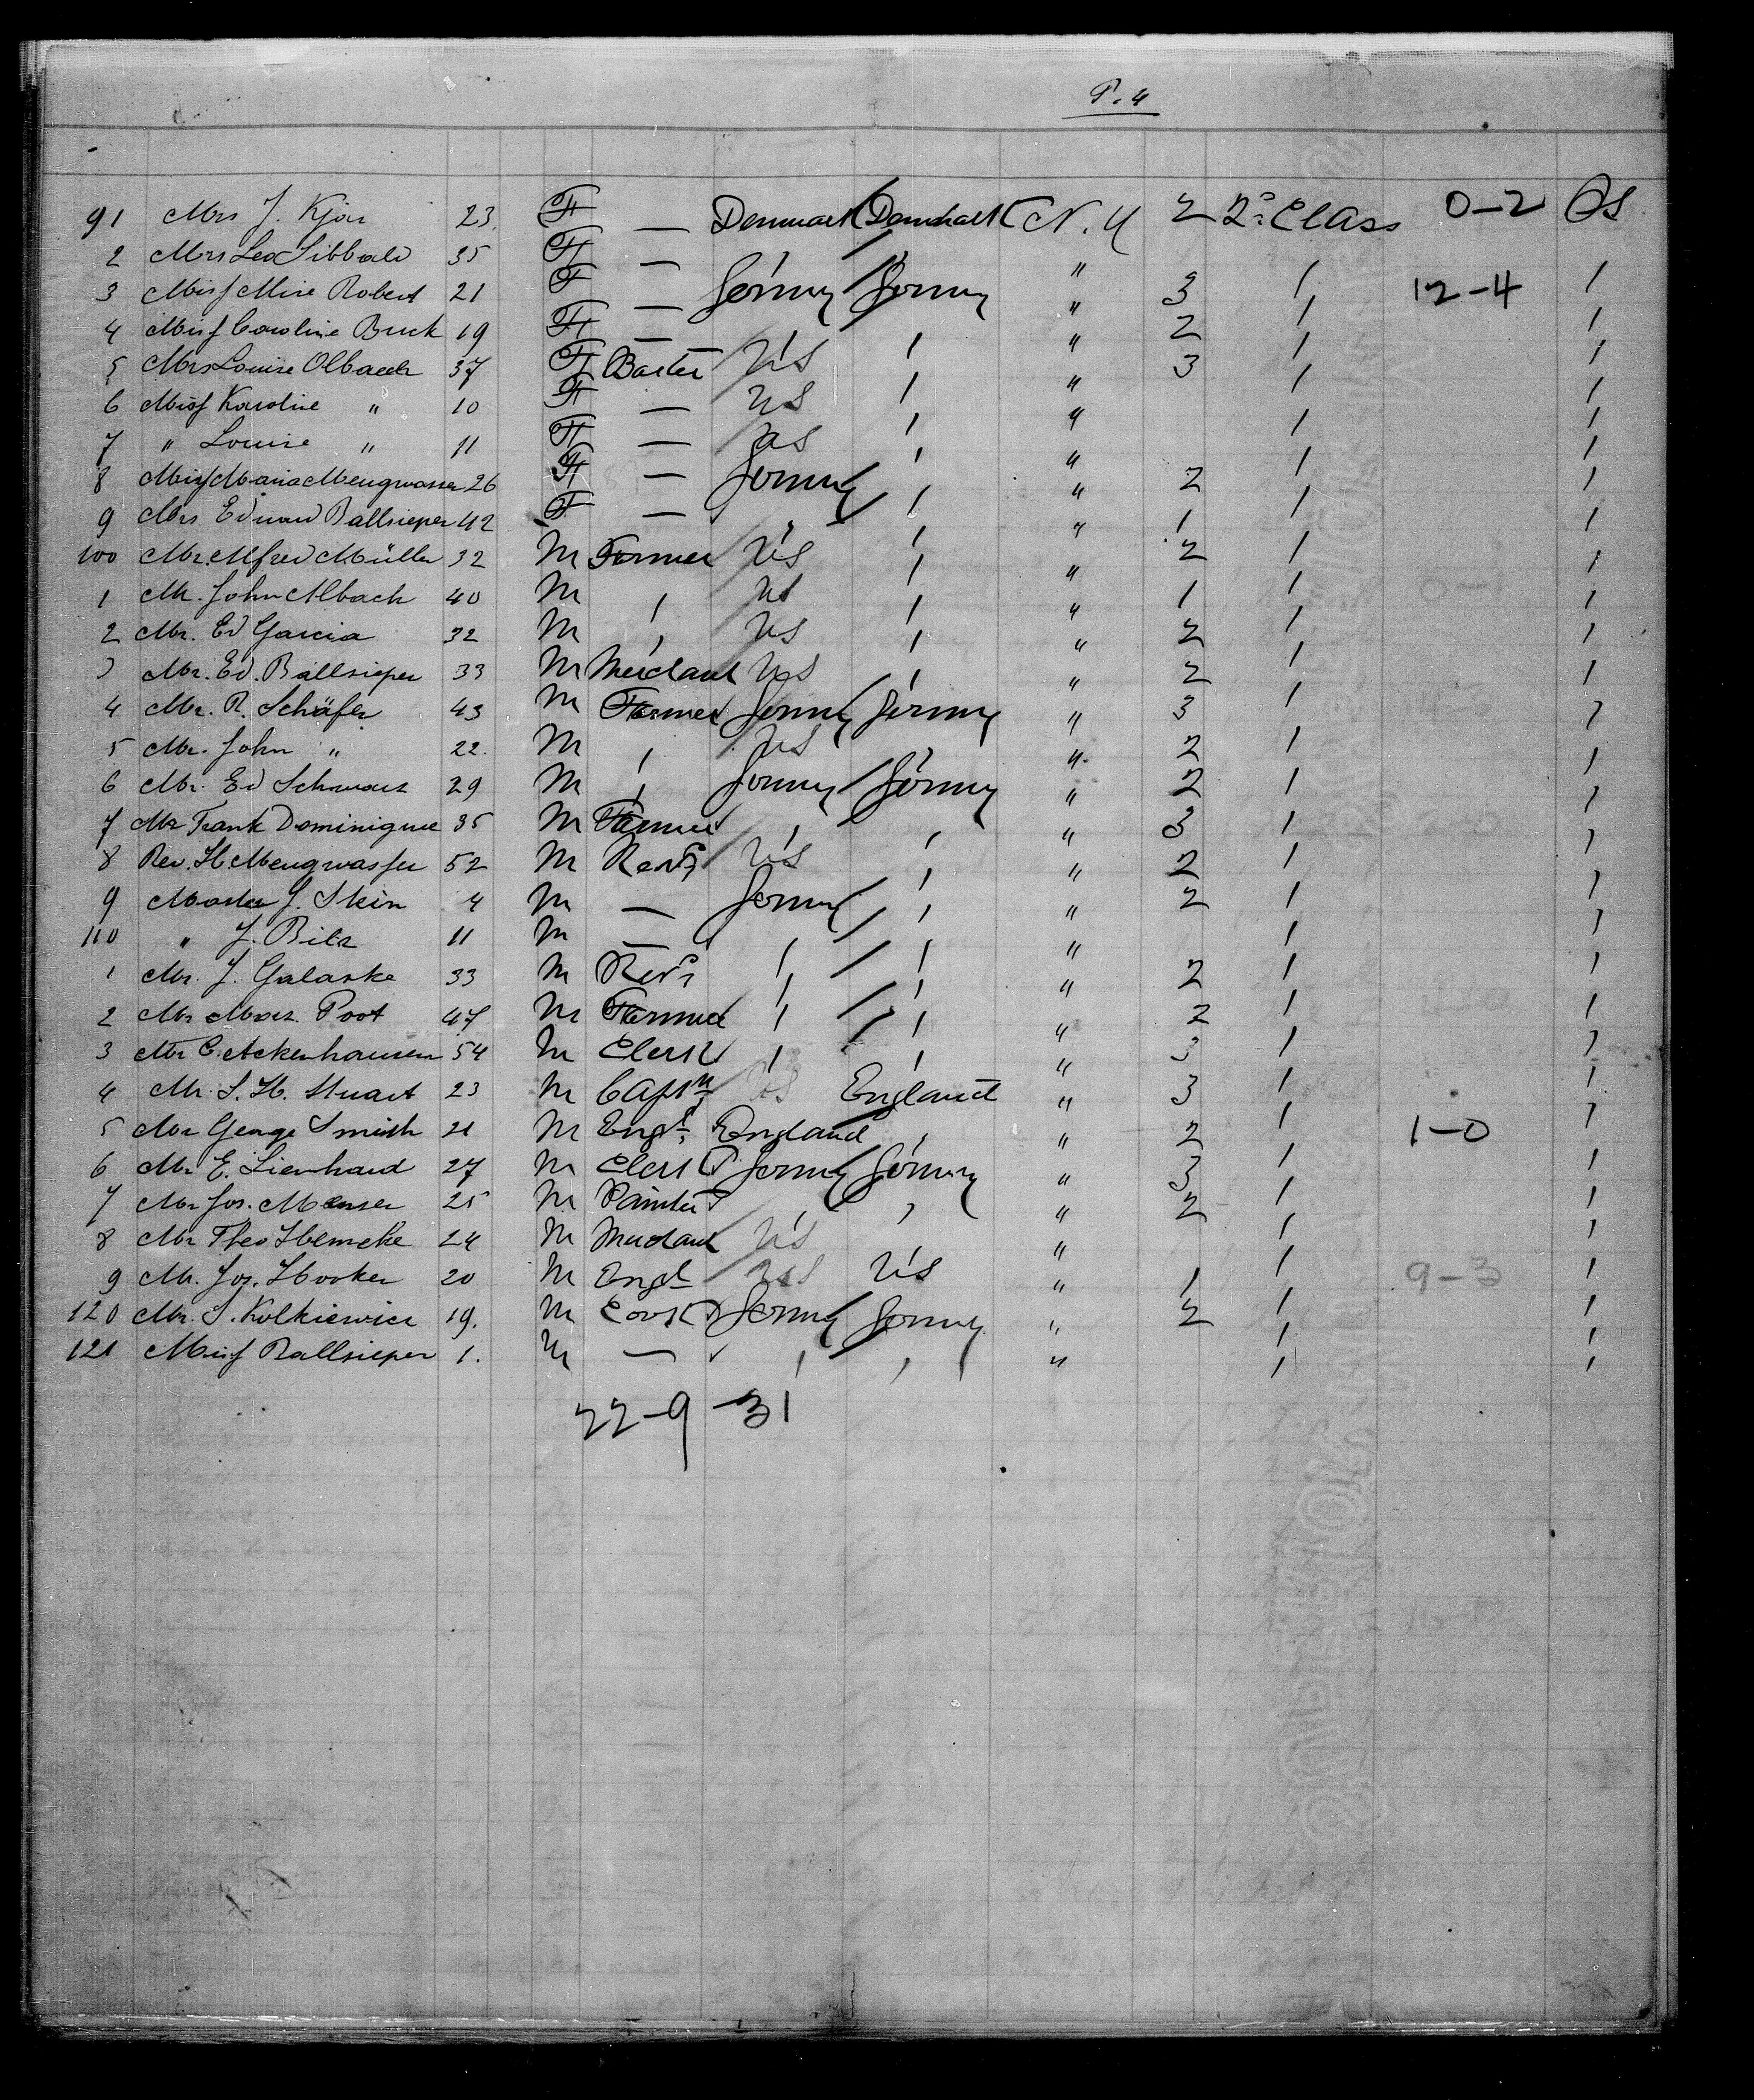 P. 4
91 Mrs J. Kjär 23. F — Denmark Denmark N. Y 2 2d Class 0-2 OS
2 Mrs Leo Sibbald 35 F — "
3 Miss Mire Robert 21 F — Germy Germy " 3 / 12-4 /
4 Miss Caroline Buck 19 F — " 2 / /
5 Mrs Louise Olbach 37 F US / " 3 / /
6 Miss Karoline " 10 F — US / " / /
7 " Louise " 11 F — US / " / /
8 Miss Maria Mengwasser 26 F — Germy / " 2 / /
9 Mrs Eduard Ballsieper 42 F — " / " 1 / /
100 Mr. Alfred Müller 32 M Farmer US / " 2 / /
1 Mr. John Albach 40 M / US / " 1 / /
2 Mr. Ed Garcia 32 M / US / " 2 / /
3 Mr. Ed. Ballsieper 33 M Merchant US / " 2 / /
4 Mr. R. Schäfer 43 M Farmer Germy Germy " 3 / /
5 Mr. John " 22. M / US " 2 / /
6 Mr. Ed Schwarz 29 M / Germy Germy " 2 / /
7 Mr Frank Dominique 35 M Farmer / / " 3 / /
8 Rev. H. Mengwasser 52 M Revd US / " 2 / /
9 Master J. Stein 4 M — Germy / " 2 / /
110 " J. Bilz 11 M — / / " / /
1 Mr. J. Galaske 33 M Revd / / " 2 / /
2 Mr Marz. Poot 47 M Farmer / / " 2 / /
3 Mr C. Ackenhausen 54 M Clerk / / " 3 / /
4 Mr. S. H. Stuart 23 M Captn US England " 3 / /
5 Mr George Smith 21 M Engr England / " 2 / 1-0 /
6 Mr E. Lienhard 27 M Clerk Germy Germy " 3 / /
7 Mr Jos. Menser 25 M Painter / / " 2 / /
8 Mr Theo Hemeke 24 M Merchant US " / /
9 Mr. Jos. Hooker 20 M Engr US US " 1 / 9-3 /
120 Mr. S. Kolkiewicz 19. M Cook Germy Germy " 2 / /
121 Miss Ballsieper 1. M — / / " / /
22-9-31